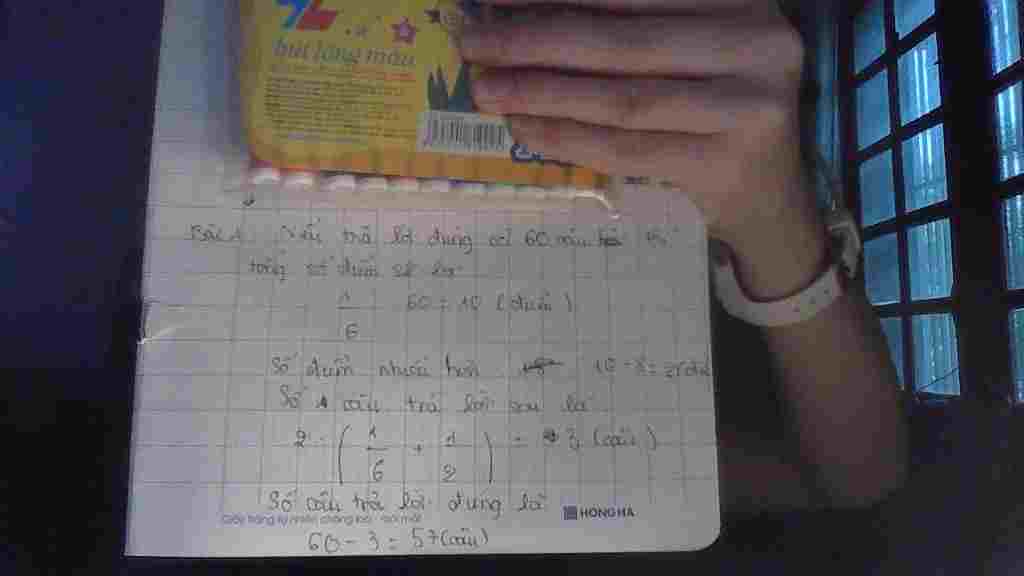 bút lông màu
Bài 1 Nếu trả lời đúng cả 60 câu thì
tổng số điểm sẽ là:
1/6 · 60 = 10 (điểm)
Số điểm nhiều hơn 10 - 8 = 2 (điểm)
Số câu trả lời sai là
2 : (1/6 + 1/2) = 3 (câu)
Số câu trả lời đúng là
Giấy trắng tự nhiên chống lóa
HONG HA
60 - 3 = 57 (câu)